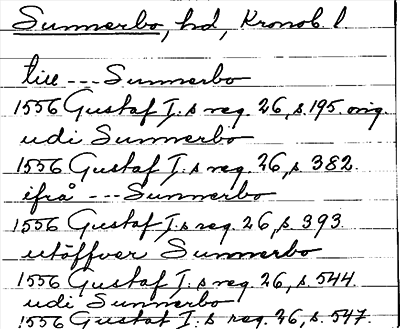 Sunnerbo, hd, Kronob. l
till --- Sunnerbo
1556 Gustaf I.s reg. 26, s. 195. orig.
udi Sunnerbo
1556 Gustaf I.s reg. 26, s. 382.
ifrå --- Sunnerbo
1556 Gustaf I.s reg. 26, s. 393.
utöffver Sunnerbo
1556 Gustaf I.s reg. 26, s. 544.
udi Sunnerbo
1556 Gustaf I.s reg. 26, s. 547.